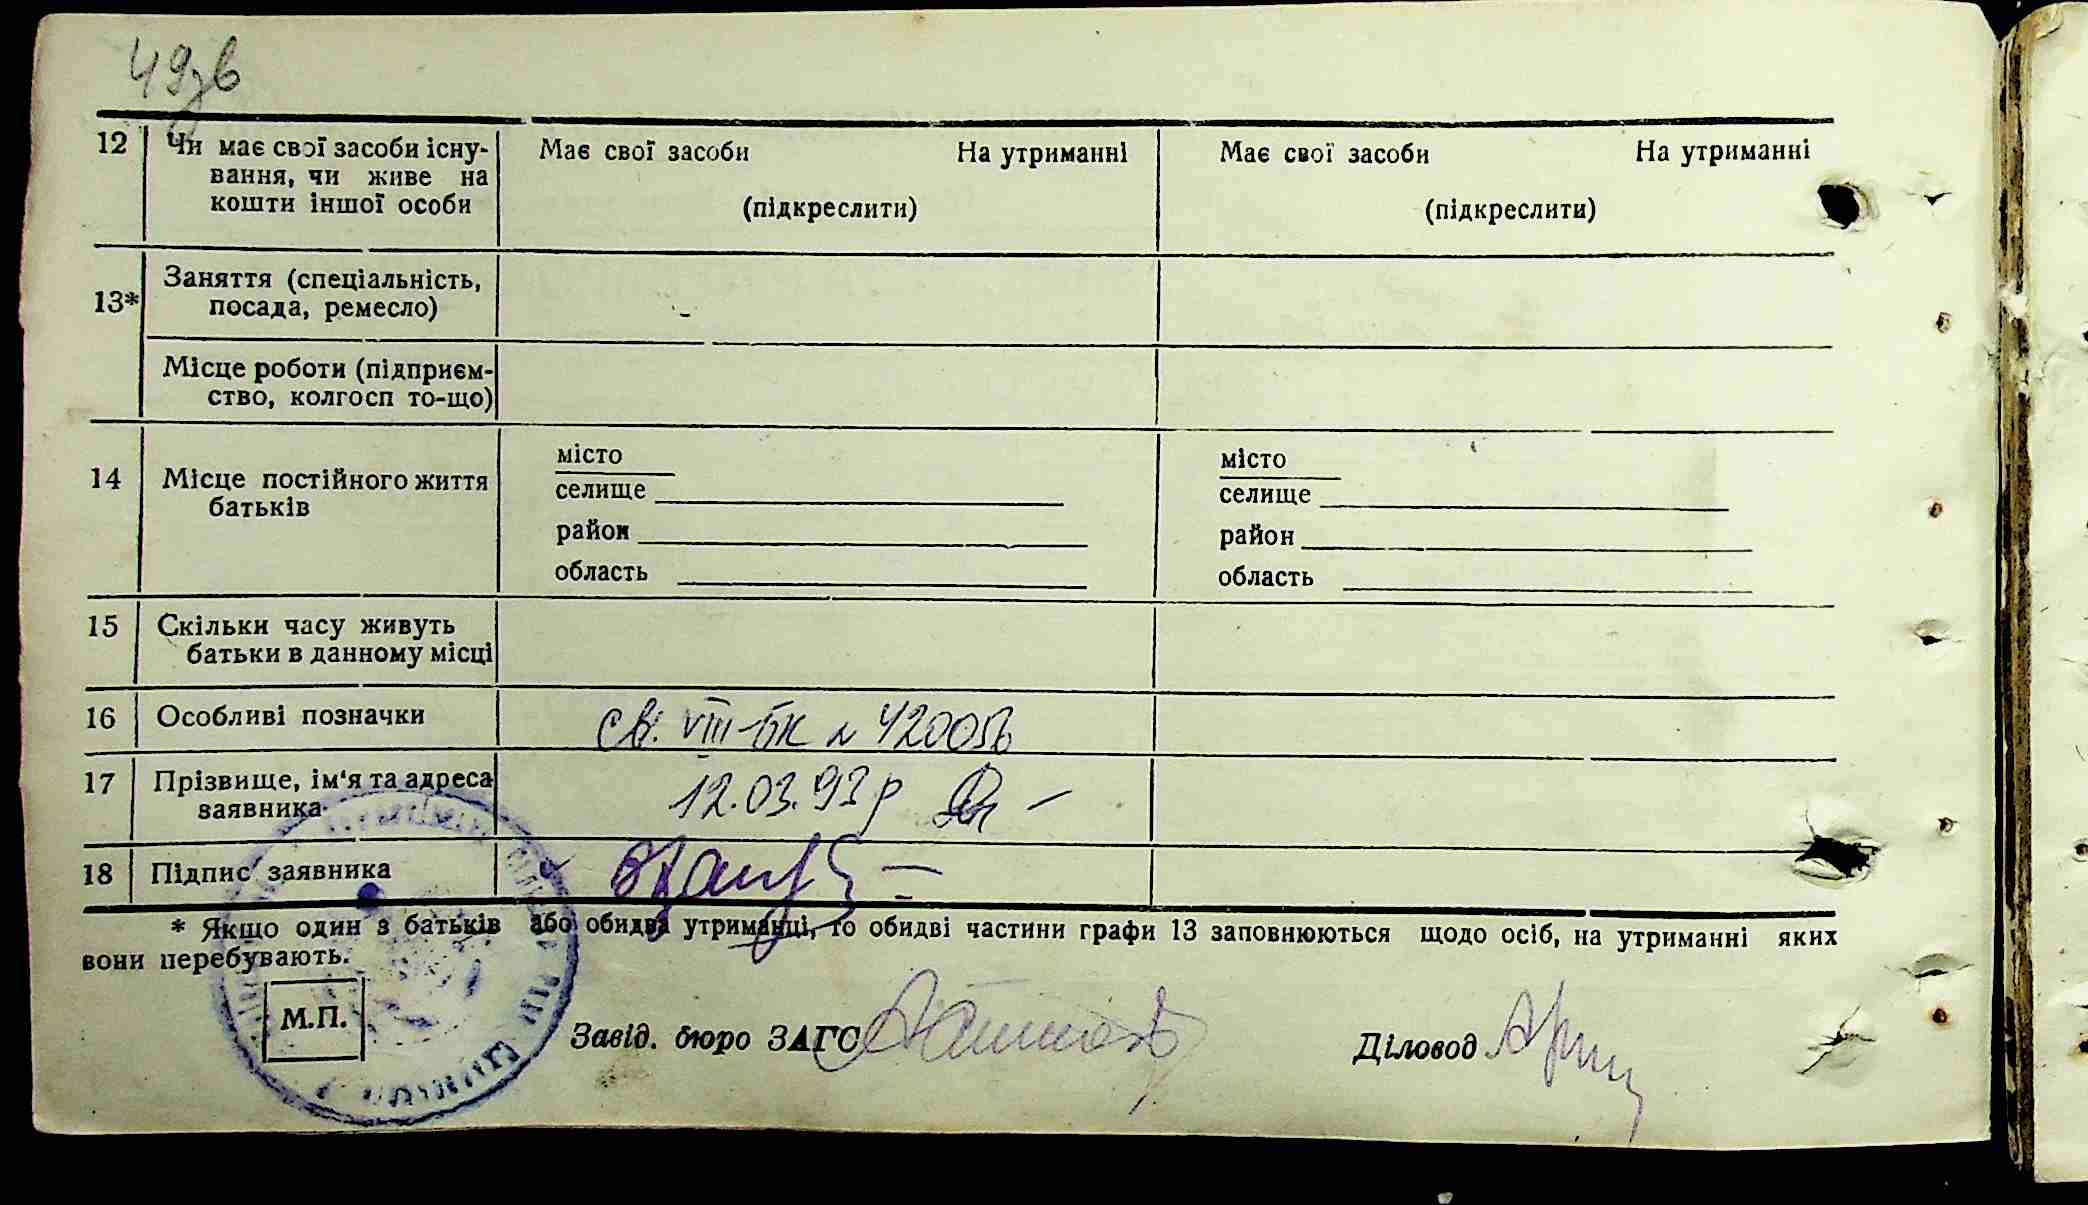 49зв
12 Чи має свої засоби існу- Має свої засоби На утриманні Має свої засоби На утриманні
вання, чи живе на
кошти іншої особи (підкреслити) (підкреслити)
13* Заняття (спеціальність,
посада, ремесло)
Місце роботи (підприєм-
ство, колгосп то-що)
місто місто
14 Місце постійного життя селище селище
батьків район район
область область
15 Скільки часу живуть
батьки в данному місці
16 Особливі позначки св. VIII-БК № 420056
17 Прізвище, ім'я та адреса 12.03.93 р
заявника
18 Підпис заявника
* Якщо один з батьків або обидва утриманці, то обидві частини графи 13 заповнюються щодо осіб, на утриманні яких
вони перебувають.
М.П.
Завід. бюро ЗАГС Діловод